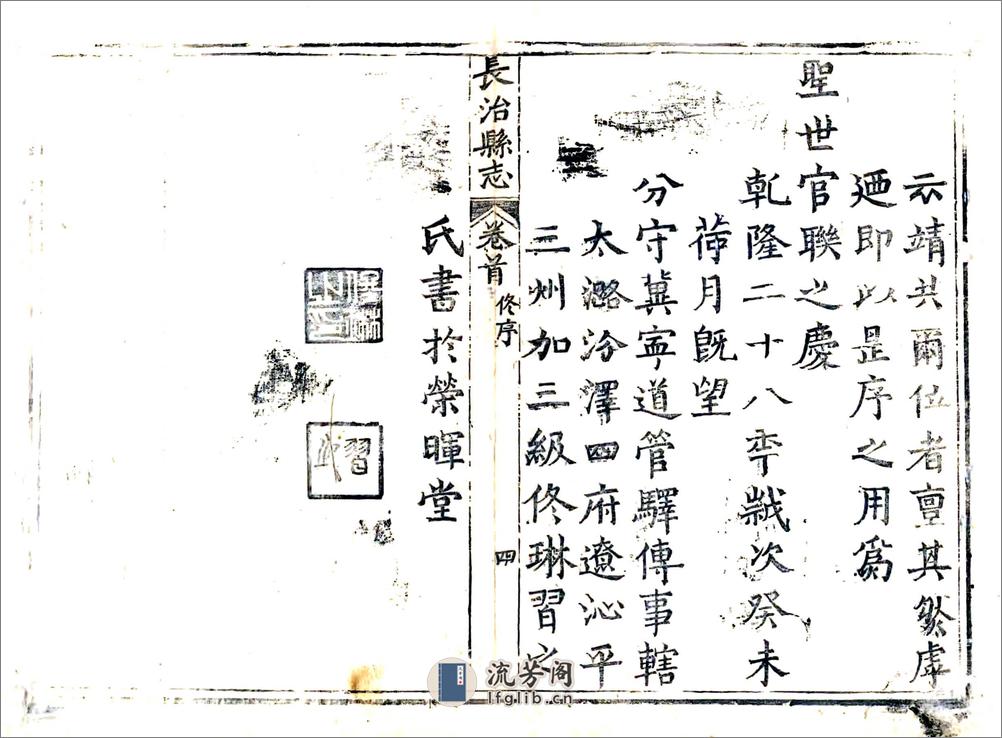 云靖共爾位者亶其然虖
廼即以是序之用爲
聖世官聯之慶
乹隆二十八秊歲次癸未
荷月既望
分守冀寧道管驛傳事轄
太潞汾澤四府遼沁平
三州加三級佟琳習之
長治縣志 卷首 佟序 四
氏書於榮暉堂
佟琳之印
習之
流芳阁
lfglib.cn